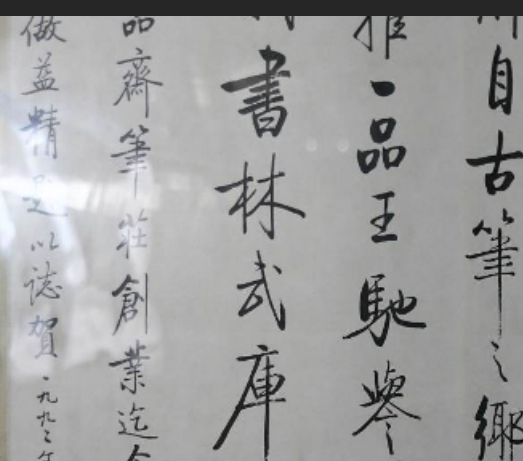 自古筆之鄉
推一品王馳譽
書林武庫
品齋筆莊創業迄今
做益精 是以誌賀 一九九二年